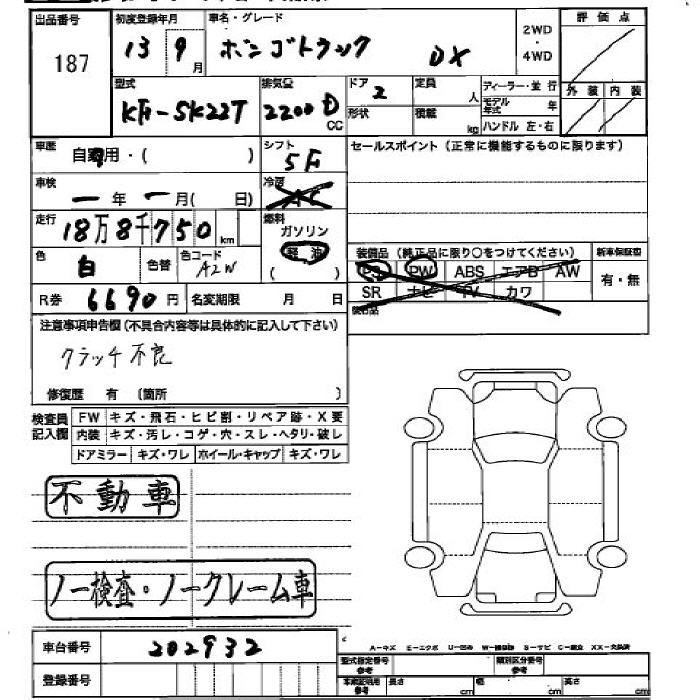 出品番号 初度登録年月 車名・グレード 2WD・4WD 評価点
187 13 9月 ボンゴトラック DX
型式 排気量 ドア 定員 ディーラー・並行 外装 内装
KH-SK22T 2200 D CC 2 人 モデル年式 年
形状 積載 kg ハンドル 左・右
車歴 自家用・( ) シフト 5F セールスポイント (正常に機能するものに限ります)
車検 一年一月( 日) 冷房 AC
走行 18万8千750km 燃料 ガソリン
軽油
( )
色 白 色替 色コード A2W
装備品 (純正品に限り○をつけてください) 新車保証書
PS PW ABS エアB AW 有・無
SR ナビ TV カワ
R券 6690円 名変期限 月 日
注意事項申告欄(不具合内容等は具体的に記入して下さい)
クラッチ不良
修復歴 有 〔箇所 〕
検査員記入欄 FW キズ・飛石・ヒビ割・リペア跡・X要
内装 キズ・汚レ・コゲ・穴・スレ・ヘタリ・破レ
ドアミラー キズ・ワレ ホイール・キャップ キズ・ワレ
不動車
ノー検査・ノークレーム車
車台番号 202932
A－キズ E－エクボ U－凹み S－サビ XX－交換済
登録番号
型式指定番号 類別区分番号
長さ cm 幅 cm 高さ cm